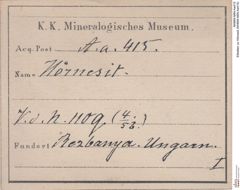 K. K. Mineralogisches Museum.
Acq. Post A. a. 415.
Name Hörnesit.
V. d. N. 1109 (4/53.)
Fundort Rezbanya. Ungarn.
I